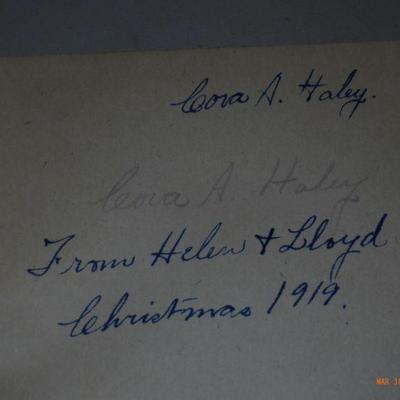 Cora A. Haley.
Cora A Haley
From Helen + Lloyd
Christmas 1919.